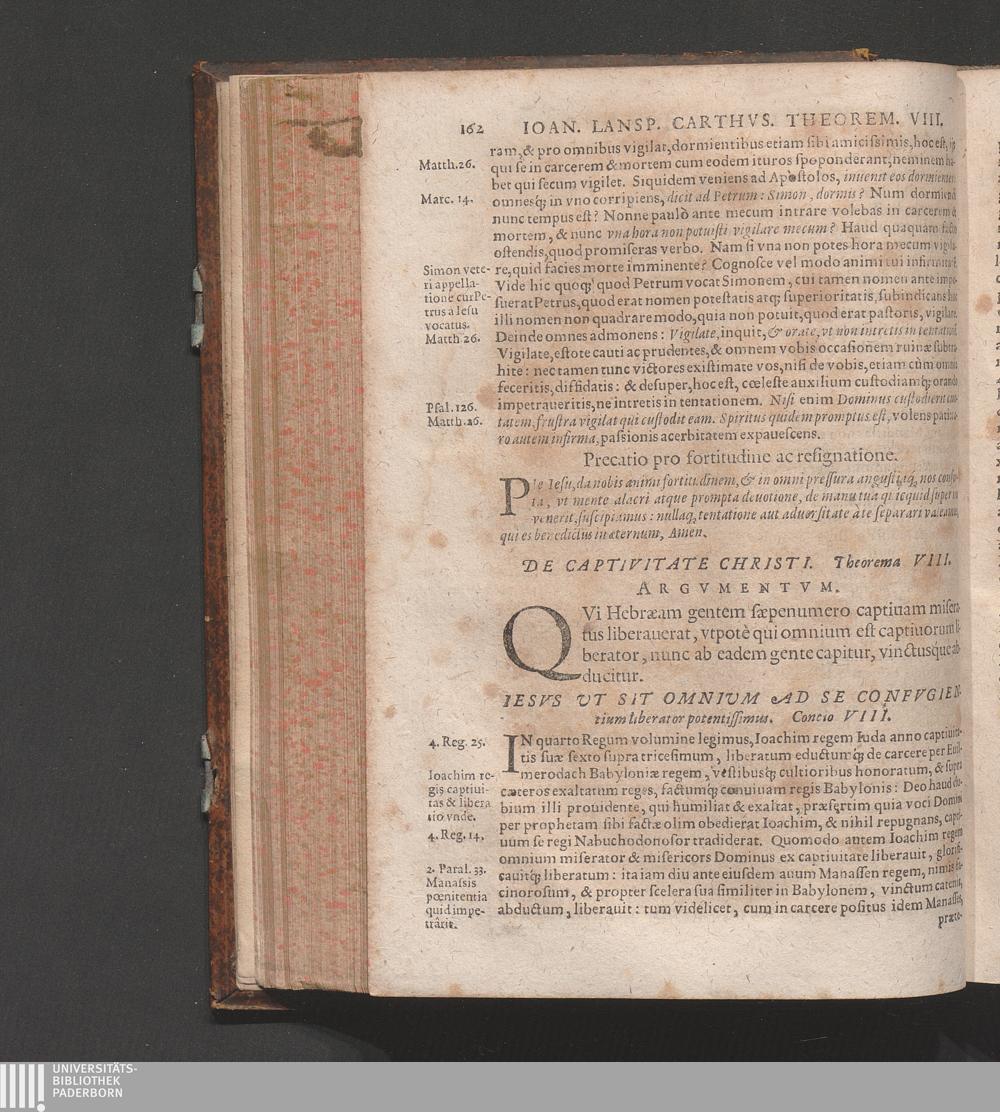 162 IOAN. LANSP. CARTHVS. THEOREM. VIII.
ram, & pro omnibus vigilat, dormientibus etiam sibi amicissimis, hoc est,
Matth. 26.
qui se in carcerem & mortem cum eodem ituros spoponderant, neminem
bet qui secum vigilet. Siquidem veniens ad Apostolos, inuenit eos dormientes
Marc. 14.
omnesq; in vno corripiens, dicit ad Petrum: Simon, dormis? Num dormiendi
nunc tempus est? Nonne paulò ante mecum intrare volebas in carcerem &
mortem, & nunc vna hora non potuisti vigilare mecum? Haud quaquam facto
ostendis, quod promiseras verbo. Nam si vna non potes hora mecum vigila-
Simon vete-
ri appella-
tione cur Pe-
trus a Iesu
vocatus.
Matth. 26.
re, quid facies morte imminente? Cognosce vel modo animi tui
Vide hic quoq; quod Petrum vocat Simonem, cui tamen nomen ante impo-
suerat Petrus, quod erat nomen potestatis atq; superioritatis, subindicans hoc
illi nomen non quadrare modo, quia non potuit, quod erat pastoris, vigilare.
Deinde omnes admonens: Vigilate, inquit, & orate, vt non intretis in
Vigilate, estote cauti ac prudentes, & omnem vobis occasionem ruinæ subtra-
hite: nec tamen tunc victores existimate vos, nisi de vobis, etiam cùm omnia
feceritis, diffidatis: & desuper, hoc est, cœleste auxilium custodiamq; orando
Psal. 126.
Matth. 26.
impetraueritis, ne intretis in tentationem. Nisi enim Dominus custodierit ciui-
tatem, frustra vigilat qui custodit eam. Spiritus quidem promptus est, volens pati:
ro autem infirma, passionis acerbitatem expauescens.
Precatio pro fortitudine ac resignatione.
PIe Iesu, da nobis animi fortitudinem, & in omni pressura angustijsq; nos
ta, vt mente alacri atque prompta deuotione, de manu tua quicquid
venerit, suscipiamus: nullaq; tentatione aut aduersitate à te separari valeamus,
qui es benedictus in æternum, Amen.
DE CAPTIVITATE CHRISTI. Theorema VIII.
ARGVMENTVM.
QVi Hebræam gentem sæpenumero captiuam misera-
tus liberauerat, vtpotè qui omnium est captiuorum li-
berator, nunc ab eadem gente capitur, vinctusque ab-
ducitur.
IESVS VT SIT OMNIVM AD SE CONFVGIEN-
tium liberator potentissimus. Concio VIII.
4. Reg. 25.
IN quarto Regum volumine legimus, Ioachim regem Iuda anno captiuita-
tis suæ sexto supra tricesimum, liberatum eductumq; de carcere per Euil-
merodach Babyloniæ regem, vestibusq; cultioribus honoratum, & supra
Ioachim re-
gis captiui-
tas & libera
tio vnde.
cæteros exaltatum reges, factumq; conuiuam regis Babylonis: Deo haud du-
bium illi prouidente, qui humiliat & exaltat, præsertim quia voci Domini
per prophetam sibi factæ olim obedierat Ioachim, & nihil repugnans, capti-
4. Reg. 14.
uum se regi Nabuchodonosor tradiderat. Quomodo autem Ioachim regem
omnium miserator & misericors Dominus ex captiuitate liberauit, glorifi-
2. Paral. 33.
Manassis
pœnitentia
quid impe-
trârit.
cauitq; liberatum: ita iam diu ante eiusdem auum Manassen regem, nimis fa-
cinorosum, & propter scelera sua similiter in Babylonem, vinctum catenis,
abductum, liberauit: tum videlicet, cum in carcere positus idem Manasses,
præte-
UNIVERSITÄTS-
BIBLIOTHEK
PADERBORN